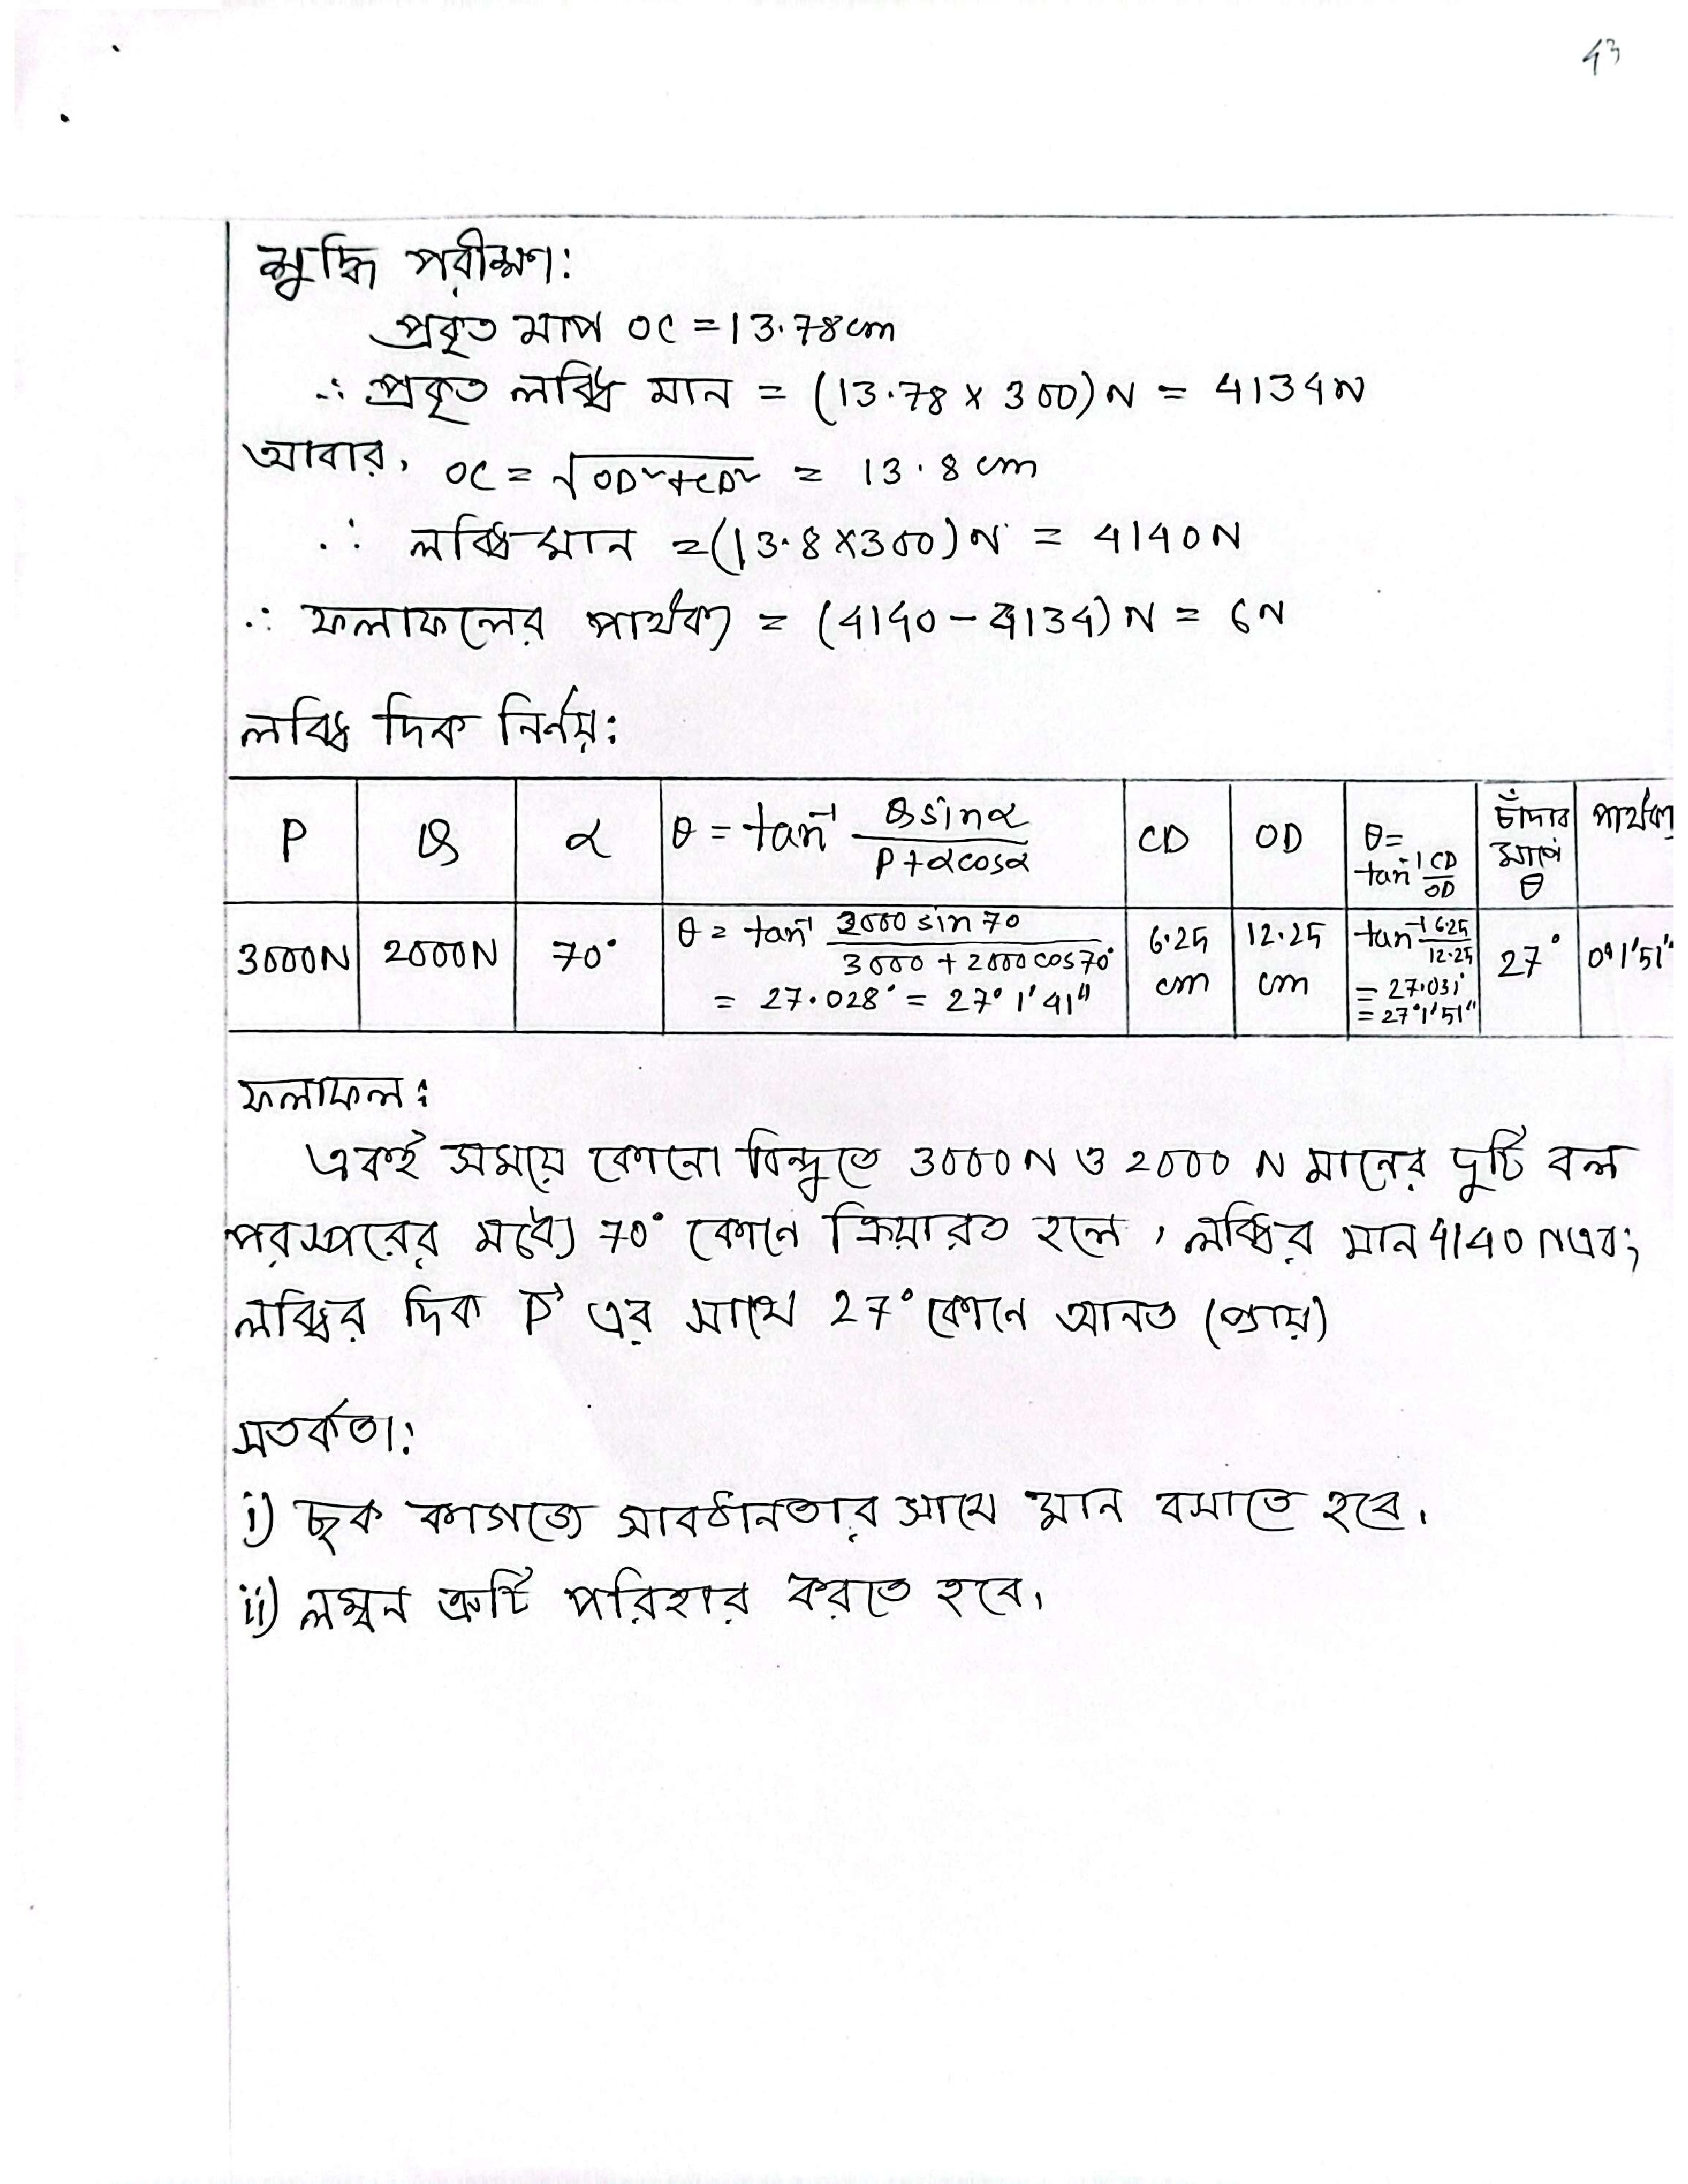 43
শুদ্ধি পরীক্ষণ:
প্রকৃত মাপ OC = 13.78 cm
∴ প্রকৃত লব্ধি মান = (13.78 × 300) N = 4134 N
আবার, OC = √OD²+CD² = 13.8 cm
∴ লব্ধি মান = (13.8 × 300) N = 4140 N
∴ ফলাফলের পার্থক্য = (4140 − 4134) N = 6 N
লব্ধি দিক নির্ণয়:
P Q α θ = tan⁻¹ Qsinα / P+αcosα CD OD θ = tan⁻¹ CD/OD চাঁদার মাপে θ পার্থক্য
3000N 2000N 70° θ = tan⁻¹ 2000 sin 70 / 3000 + 2000 cos 70° = 27.028° = 27° 1' 41" 6.25 cm 12.25 cm tan⁻¹ 6.25/12.25 = 27.031 = 27°1'51" 27° 0° 1'51"
ফলাফল:
একই সময়ে কোনো বিন্দুতে 3000 N ও 2000 N মানের দুটি বল
পরস্পরের মধ্যে 70° কোনে ক্রিয়ারত হলে, লব্ধির মান 4140 N এবং
লব্ধির দিক P এর সাথে 27° কোনে আনত (প্রায়)
সতর্কতা:
i) ছক কাগজে সাবধানতার সাথে মান বসাতে হবে।
ii) লম্বন ত্রুটি পরিহার করতে হবে।